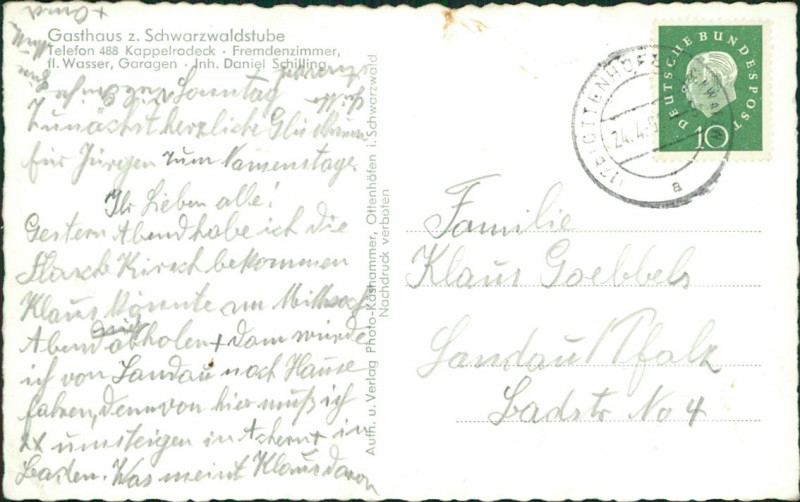 Gasthaus z. Schwarzwaldstube
Telefon 488 Kappelrodeck · Fremdenzimmer,
fl. Wasser, Garagen · Inh. Daniel Schilling
Sonntag
Zunächst herzliche
für Jürgen zum Namenstage
Ihr Lieben alle!
Gestern Abend habe ich die
Flasche Kirsch bekommen
Klaus könnte am Mittwoch
Abend abholen + dann würde
ich von Landau nach Hause
fahren, denn von hier muß ich
umsteigen in Achern + in
Baden. Was meint Klaus davon
Aufn. u. Verlag Photo-Käshammer, Ottenhöfen i. Schwarzwald
Nachdruck verboten
DEUTSCHE BUNDESPOST
10
OTTENHÖFEN
24.4.
a
Familie
Klaus Goebbels
Landau/Pfalz
Badstr No 4